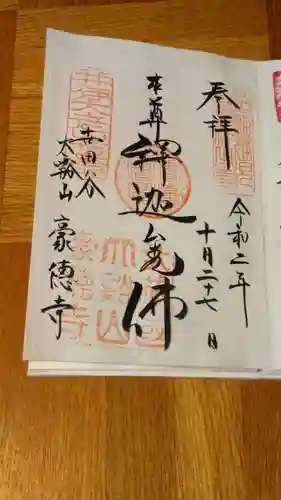 奉拝
令和二年
十月二十七日
本尊 釋迦牟尼佛
世田谷
大谿山
豪徳寺